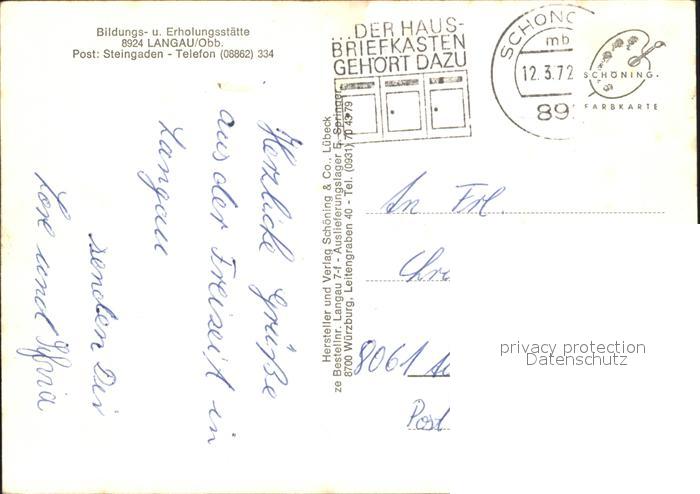 Bildungs- u. Erholungsstätte
8924 LANGAU/Obb.
Post: Steingaden - Telefon (08862) 334
...DER HAUS-
BRIEFKASTEN
GEHÖRT DAZU
SCHONG
mb
12.3.72
89
SCHÖNING.
FARBKARTE
Herzliche Grüße
aus der Freizeit in
Langau
senden Dir
und
Hersteller und Verlag Schöning & Co., Lübeck
ze Bestellnr. Langau 7-f - Auslieferungslager E. Springer,
8700 Würzburg, Leitengraben 40 - Tel. (0931) 70 43 79
An Frl.
Chr
8061
Post
privacy protection
Datenschutz